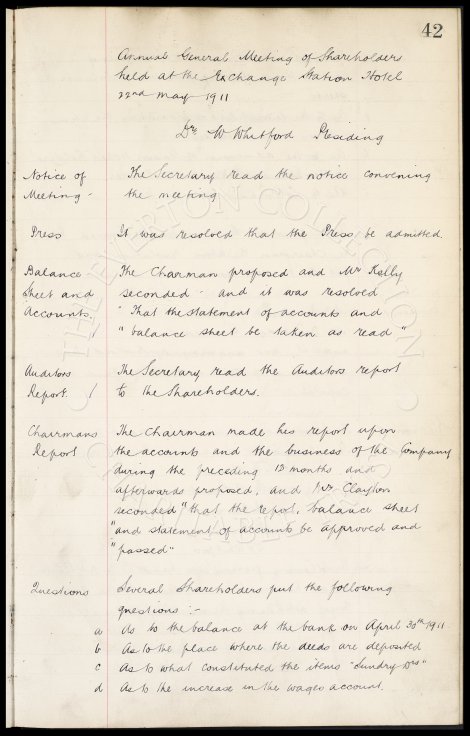 42
Annual General Meeting of Shareholders
held at the Exchange Station Hotel
22nd May 1911
Dr W Whitford Presiding
Notice of Meeting - The Secretary read the notice convening
the meeting
Press It was resolved that the Press be admitted.
Balance Sheet and Accounts. The Chairman proposed and Mr Kelly
seconded - and it was resolved
"That the statement of accounts and
"balance sheet be taken as read"
Auditors Report. The Secretary read the Auditors report
to the Shareholders.
Chairmans Report The Chairman made his report upon
the accounts and the business of the Company
during the preceding 12 months and
afterwards proposed, and Mr Clayton
seconded "that the report, balance sheet
"and statement of accounts be approved and
"passed"
Questions Several Shareholders put the following
questions :-
a As to the balance at the bank on April 30th 1911
b As to the place where the deeds are deposited
c As to what constituted the items "Sundry Drs"
d As to the increase in the wages account.
THE EVERTON COLLECTION